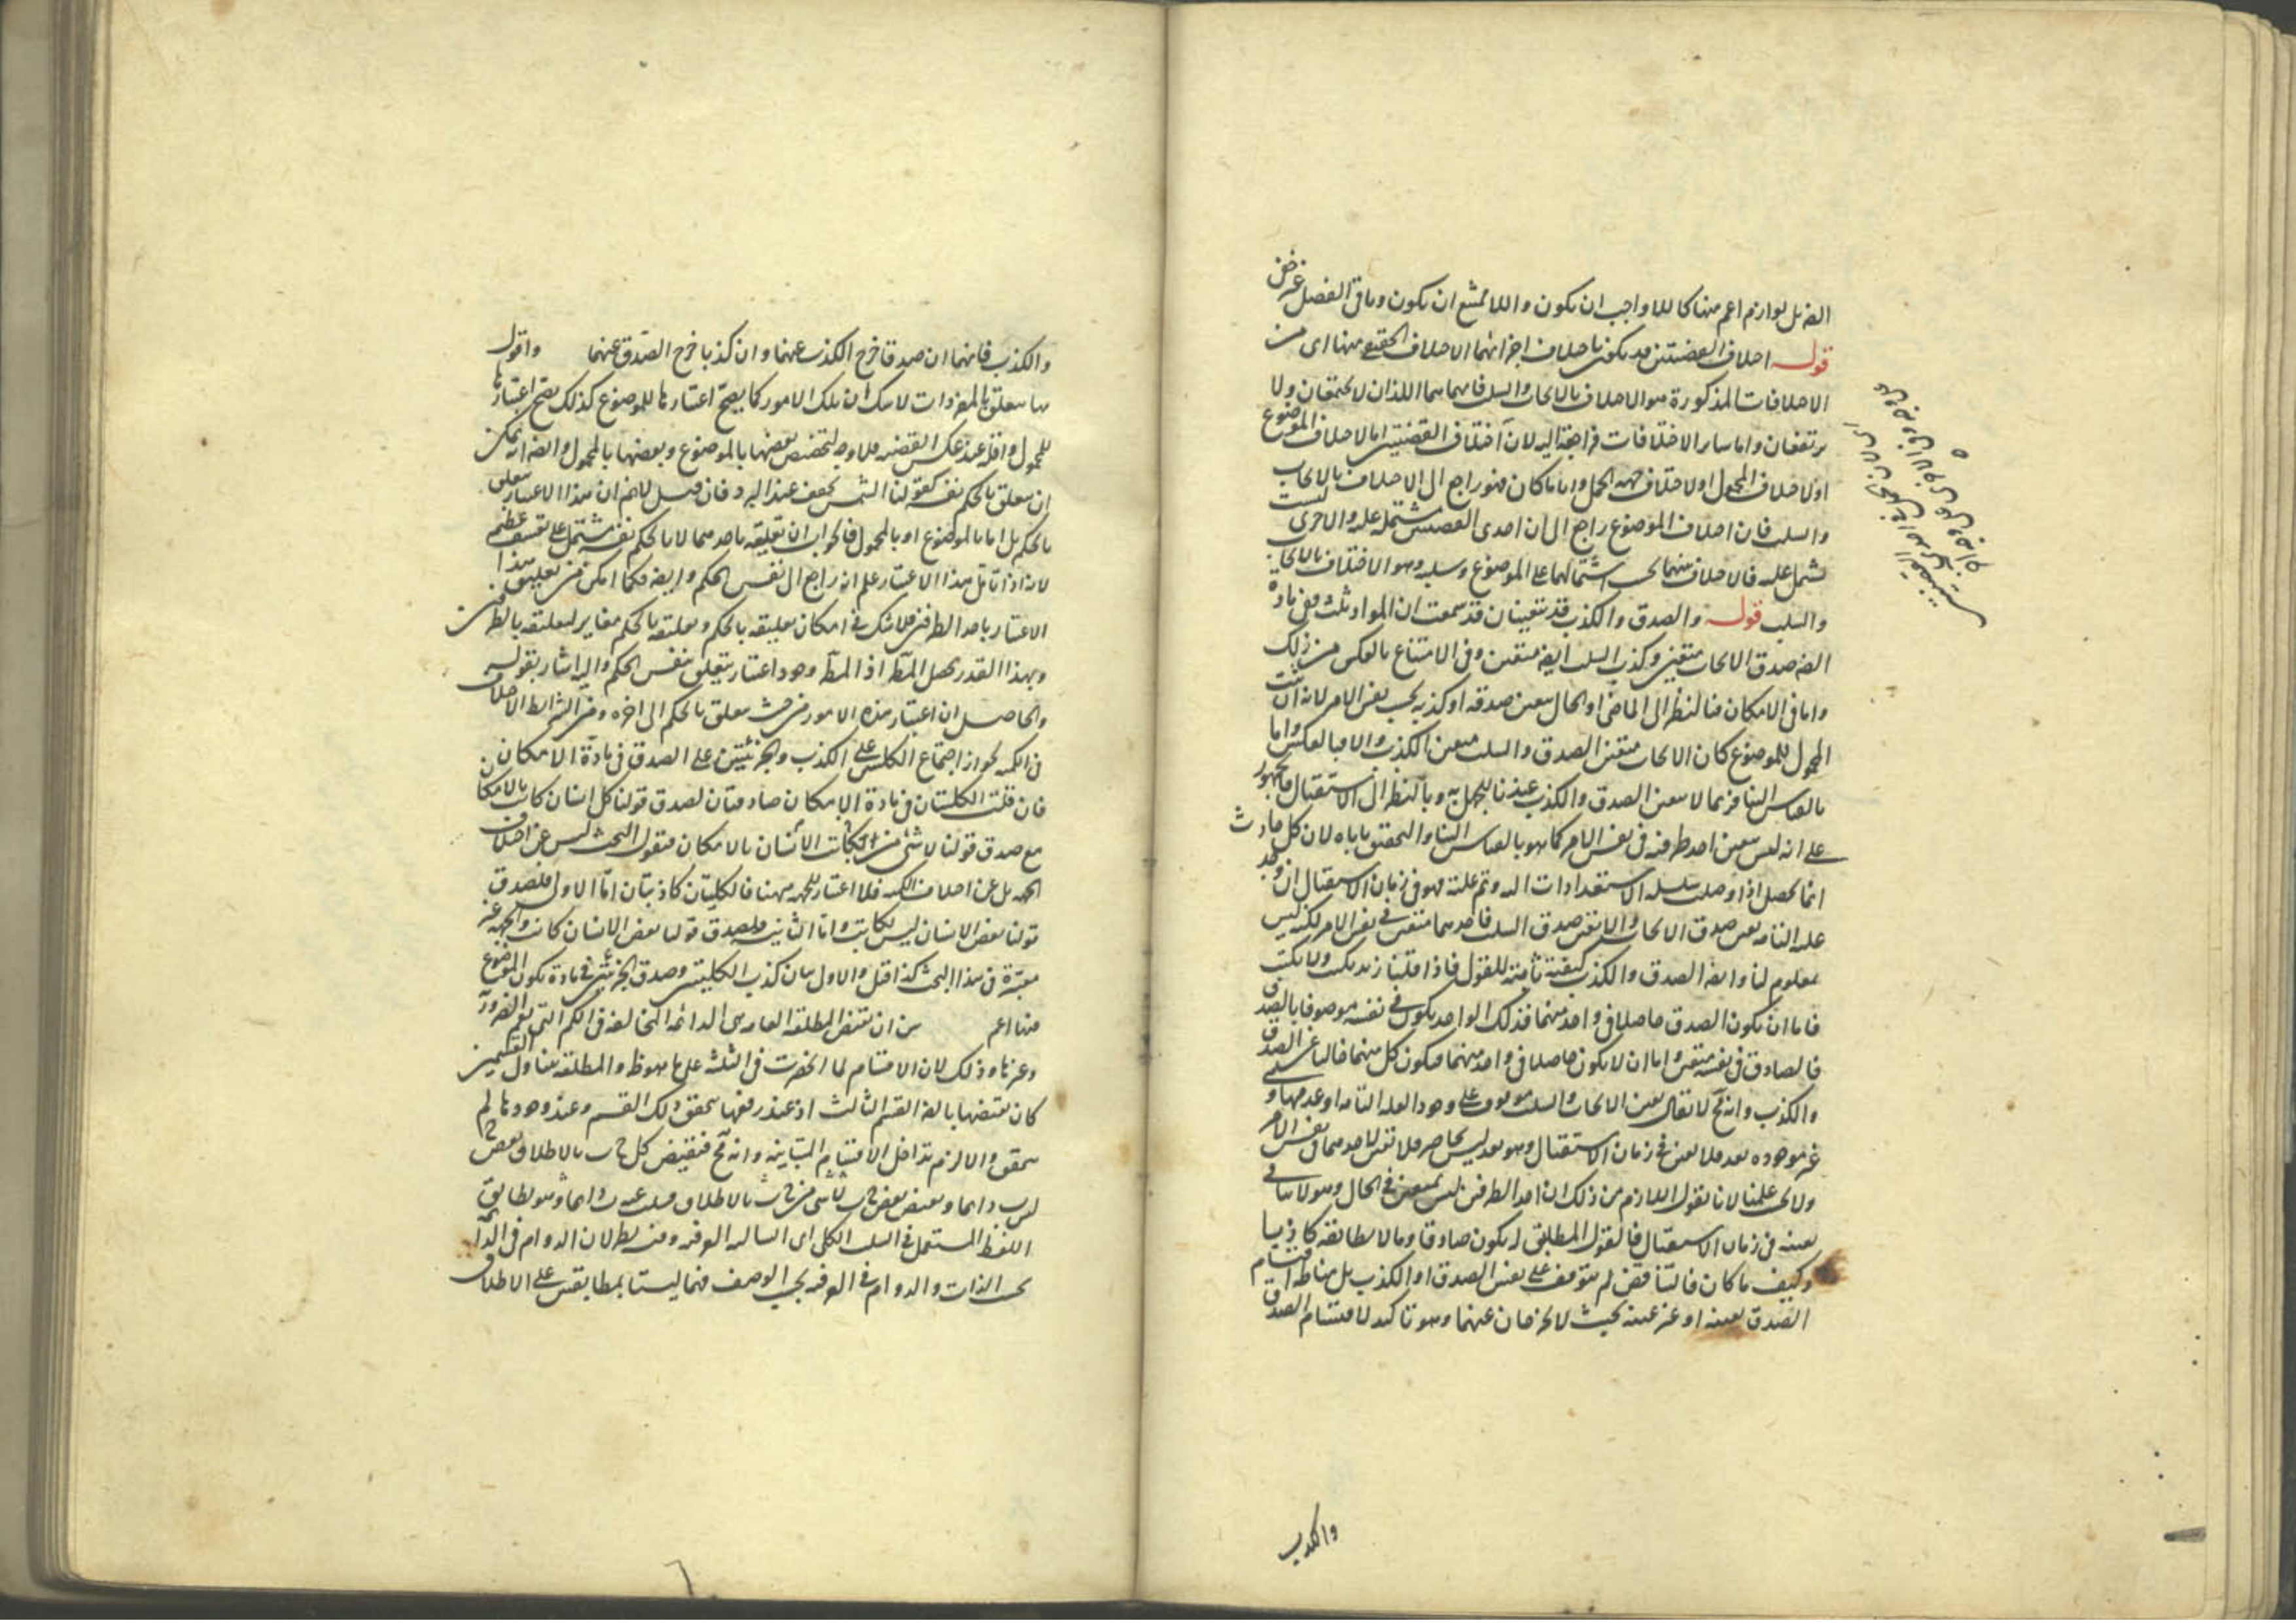 الضه بل لوازم اعم منها كاللاواجب ان يكون واللاممتنع ان يكون وباقى الفصل غير خفى
قوله اختلاف القضيتين قد يكون باختلاف اجزائهما الاختلاف الحقيقى ههنا اى من
الاختلافات المذكورة هو الاختلاف بالايجاب والسلب فانهما هما اللذان لا يجتمعان ولا
يرتفعان واما ساير الاختلافات فراجعة اليه لان اختلاف القضيتين اما لاختلاف الموضوع
او لاختلاف المحمول او لاختلاف جهة الحمل واياما كان فهو راجع الى الاختلاف بالايجاب
والسلب فان اختلاف الموضوع راجع الى ان احدى القضيتين مشتملة عليه والاخرى ليست
تشتمل عليه فالاختلاف بينهما فى اشتمالهما على الموضوع وسلبه وهو الاختلاف بالايجاب
والسلب قوله والصدق والكذب قد يتعينان قد سمعت ان المواد ثلث ففى مادة
الضه صدق الايجاب متعين وكذب السلب ايضا متعين وفى الامتناع بالعكس من ذلك
واما فى الامكان فبالنظر الى الماضى او الحال يتعين صدقه او كذبه بحسب نفس الامر لانه ان ثبت
المحمول للموضوع كان الايجاب متعين الصدق والسلب متعين الكذب والا فبالعكس واما
بالقياس الينا فربما لا يتعين الصدق والكذب عندنا للجهل به وبالنظر الى الاستقبال فالجمهور
على انه ليس يتعين احد طرفيه فى نفس الامر كما هو بالقياس الينا والتحقيق ياباه لان كل حادث
انما يحصل اذا وصلت سلسلة الاستعدادات اليه وتم علته فهو فى زمان الاستقبال ان وجد
علته التامة تعين صدق الايجاب والا تعين صدق السلب فاحدهما متعين فى نفس الامر لكنه ليس
بمعلوم لنا وايضا الصدق والكذب كيفية ثابتة للقول فاذا قلنا زيد يكتب ولا يكتب
فاما ان يكون الصدق حاصلا فى واحد منهما فذلك الواحد يكون فى نفسه موصوفا بالصدق
فالصادق فى نفسه متعين واما ان لا يكون حاصلا فى واحد منهما فيكون كل منهما خاليا عن الصدق
والكذب وانه مح لا يقال تعين الايجاب والسلب موقوف على وجود العلة التامة او عدمها و
غير موجوده بعد فلا تعين فى زمان الاستقبال وهو بعد ليس بحاضر فلا تعين لاحدهما فى نفس الامر
ولا فى علمنا لانا نقول اللازم من ذلك ان احد الطرفين ليس بمتعين فى الحال وهو لا ينافى
تعينه فى زمان الاستقبال فالقول المطابق له يكون صادقا وما لا يطابقه كاذبا
وكيف ما كان فالتناقض لم يتوقف على تعين الصدق او الكذب بل مناطه اقتسام
الصدق بعينه او غير عينه بحيث لا يخرجان عنهما وهو تاكيد لاقتسام الصدق
والكذب
والكذب فانهما ان صدقا خرج الكذب عنهما وان كذبا خرج الصدق عنهما واقول
ما يتعلق بالمفردات لا شك ان تلك الامور كما يصح اعتبارها للموضوع كذلك يصح اعتبارها
للمحمول واقله عند عكس القضيه فلا وجه لتخصيص بعضها بالموضوع وبعضها بالمحمول وايضا انه يمكن
ان يتعلق بالحكم نفسه كقولنا الشمس تجفف عند البرد فان قيل لانم ان هذا الاعتبار يتعلق
بالحكم بل اما بالموضوع او بالمحمول فالجواب ان تعليقه باحدهما لا بالحكم نفسه مشتمل على تعسف عظيم
لانه اذا تامل هذا الاعتبار علم انه راجع الى نفس الحكم وايضا فكما امكن تعليق هذا
الاعتبار باحد الطرفين فلا شك فى امكان تعليقه بالحكم وتعليقه بالحكم مغاير لتعليقه بالطرفين
وبهذا القدر يحصل المط اذ المط وجود اعتبار يتعلق بنفس الحكم واليه اشار بقوله
والحاصل ان اعتبار هذه الامور من حيث يتعلق بالحكم الى اخره ومن الشرائط الاختلاف
فى الكميه لجواز اجتماع الكليتين على الكذب والجزئيتين على الصدق فى مادة الامكان
فان قلت الكليتان فى مادة الامكان صادقتان لصدق قولنا كل انسان كاتب بالامكان
مع صدق قولنا لا شئ من الانسان بكاتب بالامكان فنقول البحث ليس عن اختلاف
الجهة بل عن اختلاف الكميه فلا اعتبار للجهة ههنا فالكليتان كاذبتان اما الاولى فلصدق
قولنا بعض الانسان ليس بكاتب واما الثانية فلصدق قولنا بعض الانسان كاتب والجهة غير
معتبرة فى هذا البحث كذا قيل والاولى بيان كذب الكليتين وصدق الجزئيتين فى مادة يكون الموضوع
فيها اعم من ان نقيض المطلقة العامه هى الدائمة المخالفة فى الكم التى تعم الضرورة
وغيرها وذلك لان الاقسام لما انحصرت فى الثلثة على ما هو ظ والمطلقة يتناول القسمين
كان نقيضها بالضه القسم الثالث اذ عند رفعها يتحقق ذلك القسم وعند وجودها لم
يتحقق والا لزم تداخل الاقسام المتباينة وانه مح فنقيض كل ج ب بالاطلاق بعض ج
ليس ب دائما ونقيض بعض ج ب لا شئ من ج ب بالاطلاق
اللفظ المستعمل فى السلب الكلى اى السالبة العرفية وفيه نظر لان الدوام فى الدائمة
بحسب الذات والدوام فى العرفيه بحسب الوصف فهما ليستا بمطابقتين على الاطلاق